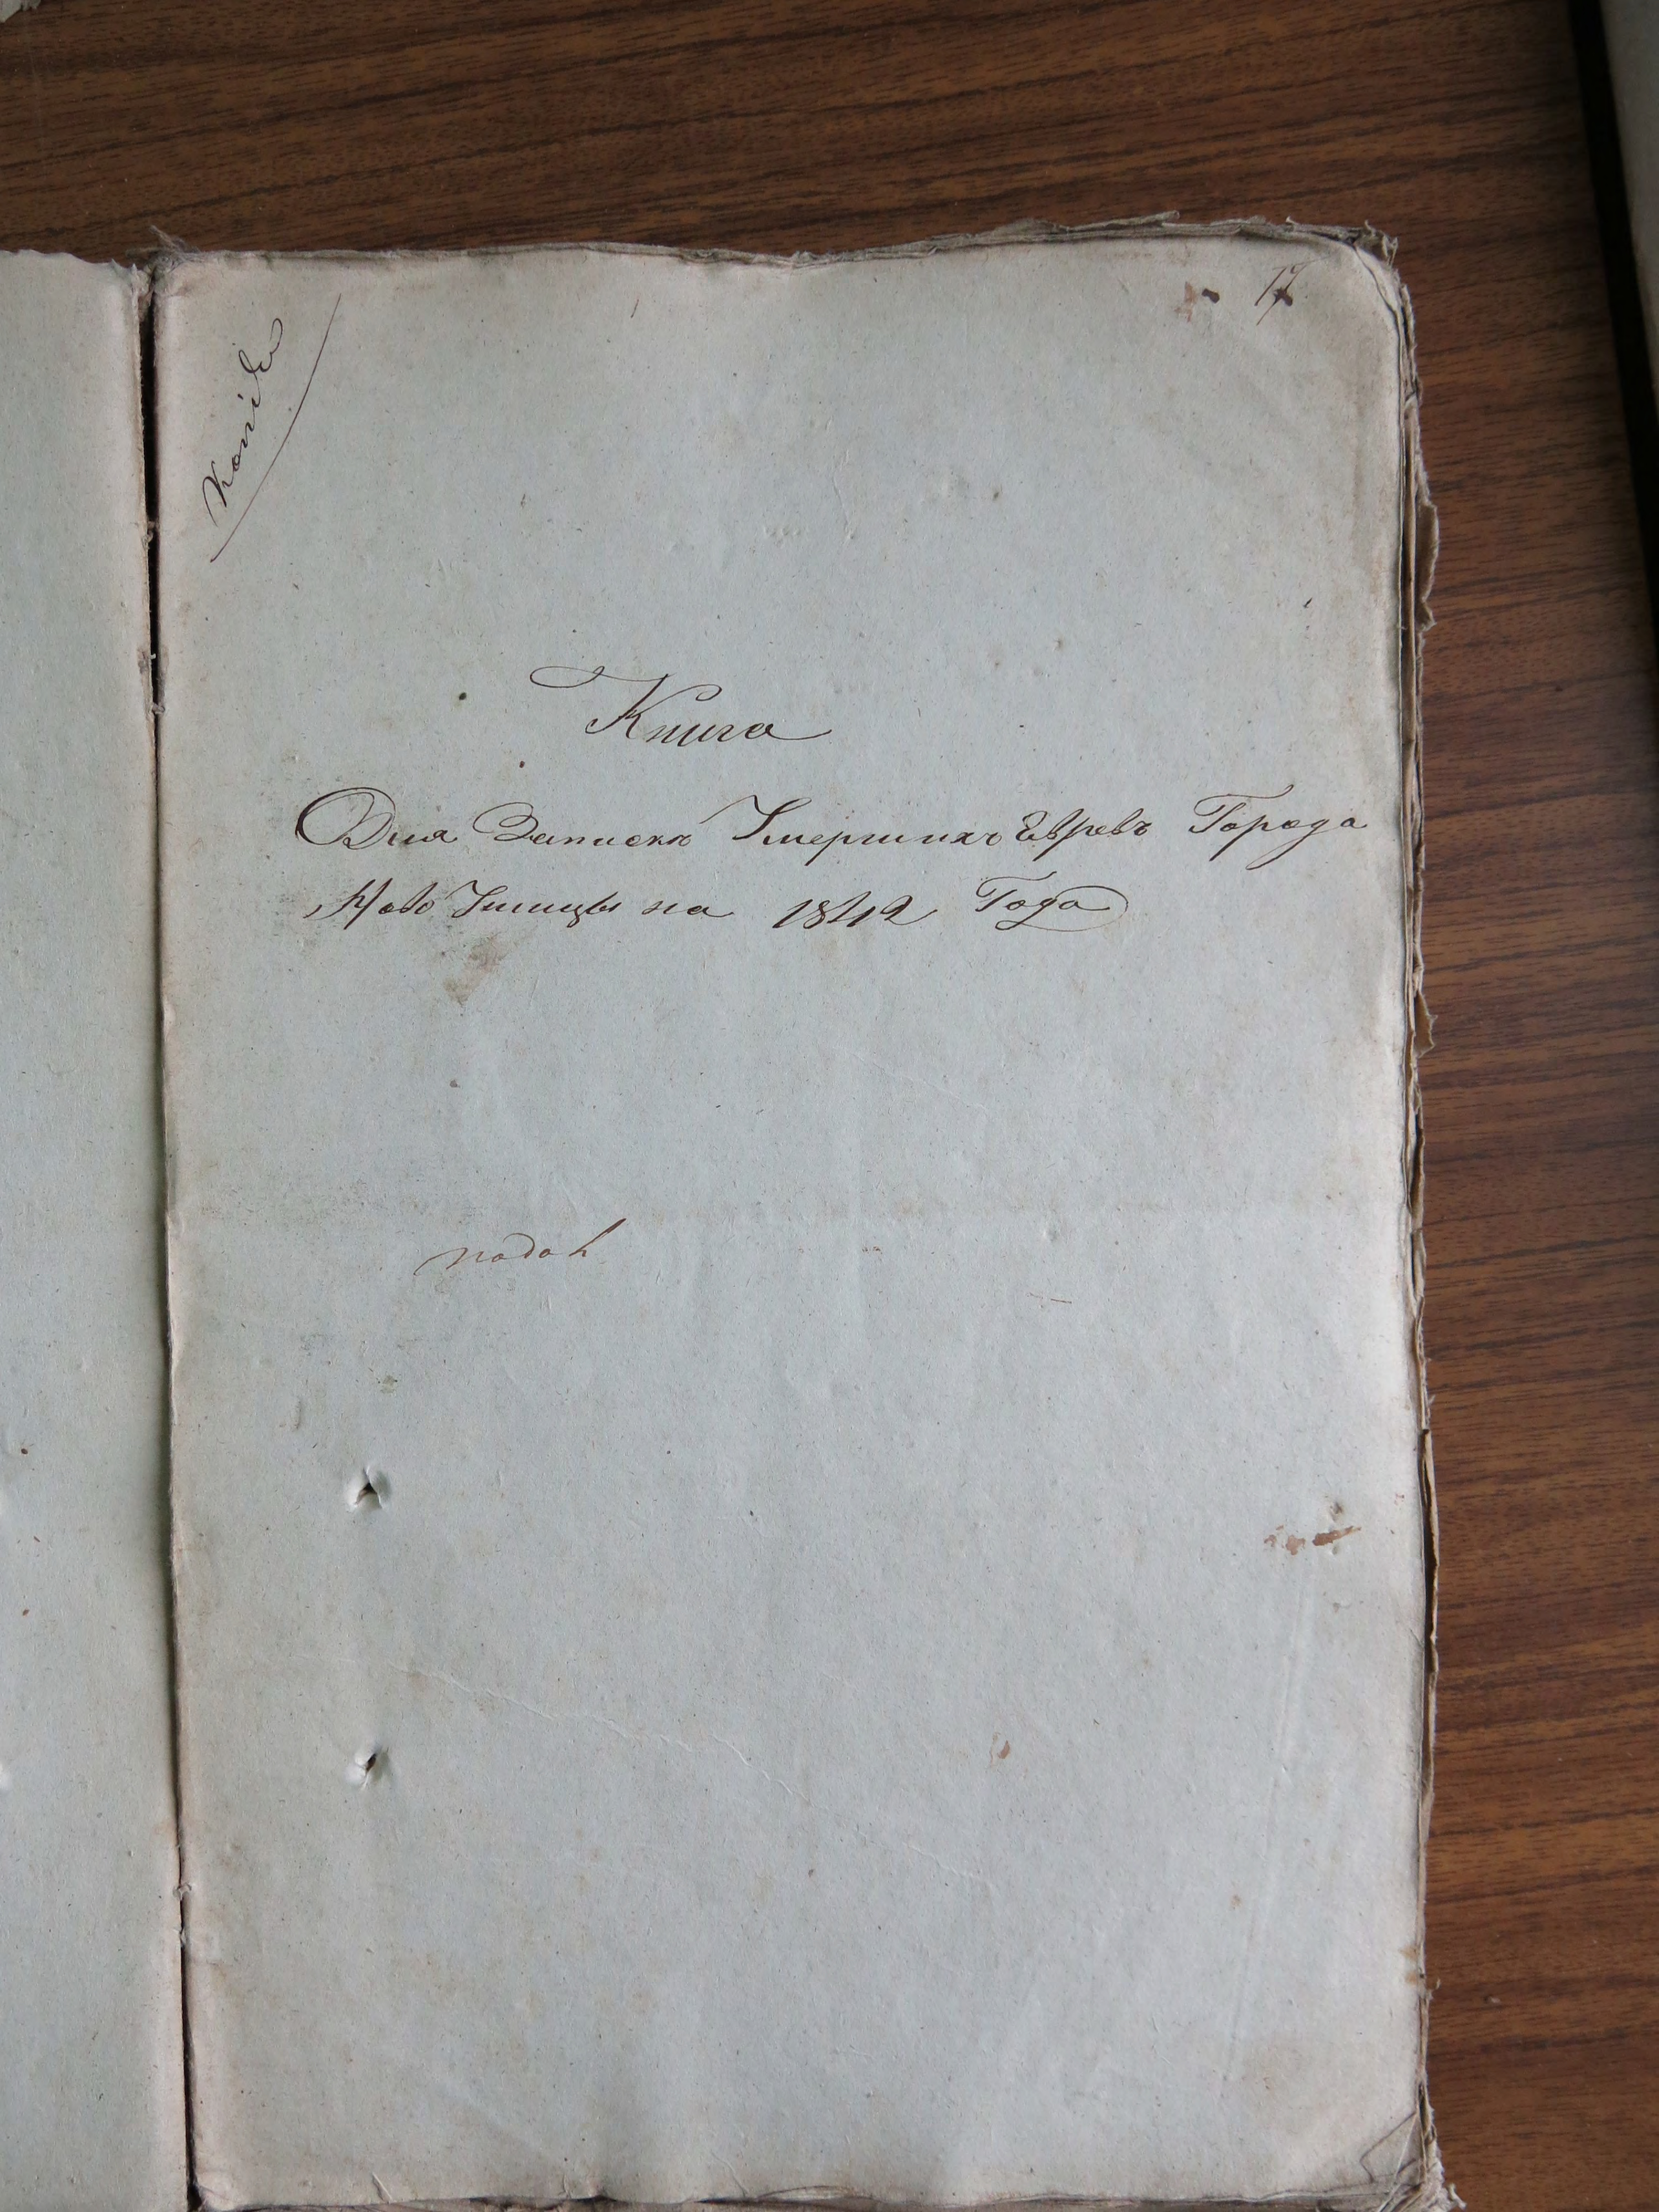 17
Копія
Книга
Для Записки Умершихъ Евревъ Города
Ново Ушицы на 1842 Года